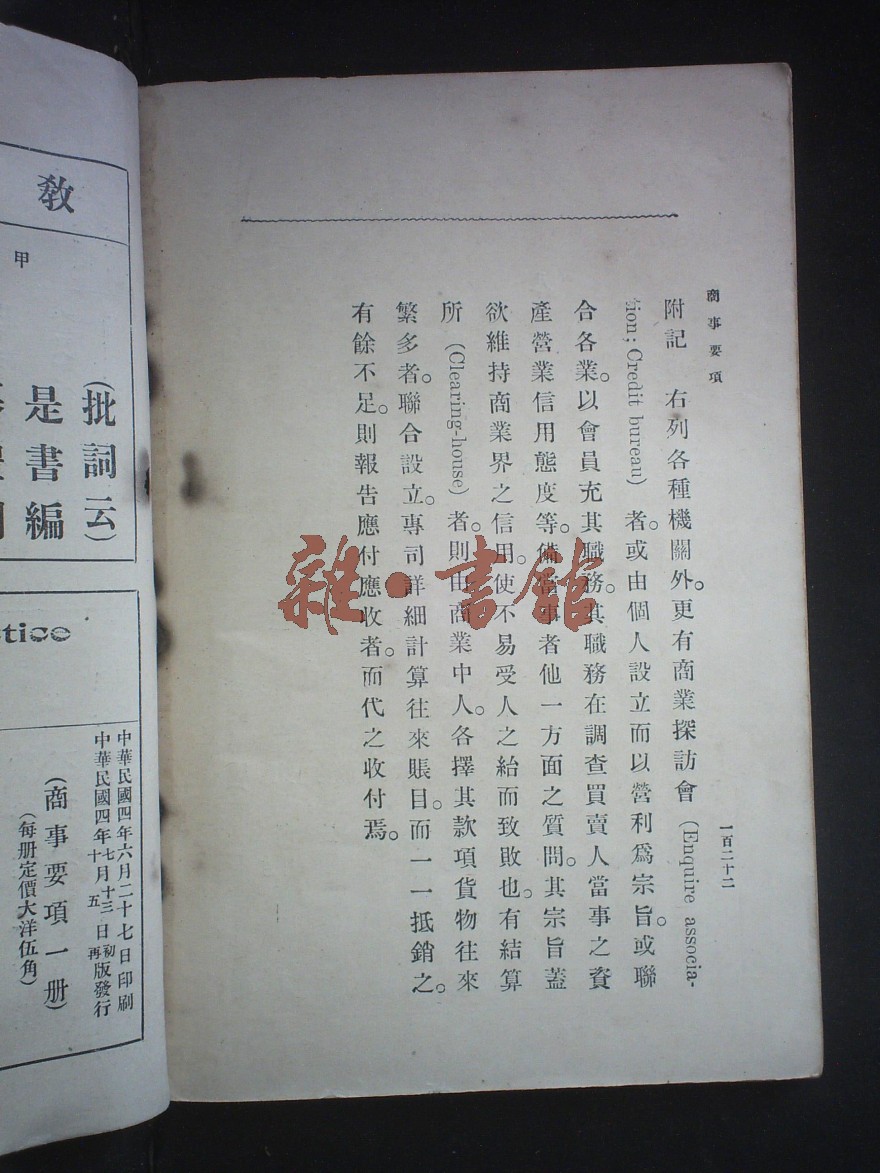 商事要項
一百二十二
附記　右列各種機關外。更有商業探訪會(Enquire associa-
tion; Credit bureau)者。或由個人設立而以營利爲宗旨。或聯
合各業。以會員充其職務。其職務在調查買賣人當事之資
產營業信用態度等。備當事者他一方面之質問。其宗旨蓋
欲維持商業界之信用。使不易受人之紿而致敗也。有結算
所(Clearing-house)者。則由商業中人。各擇其款項貨物往來
繁多者。聯合設立。專司詳細計算往來賬目。而一一抵銷之。
有餘不足。則報告應付應收者。而代之收付焉。
雜·書館
教
甲
(批詞云)
是書編
tice
中華民國四年六月二十七日印刷
中華民國四年七月十三日初版發行
十月五日再
(商事要項一册)
(每册定價大洋伍角)